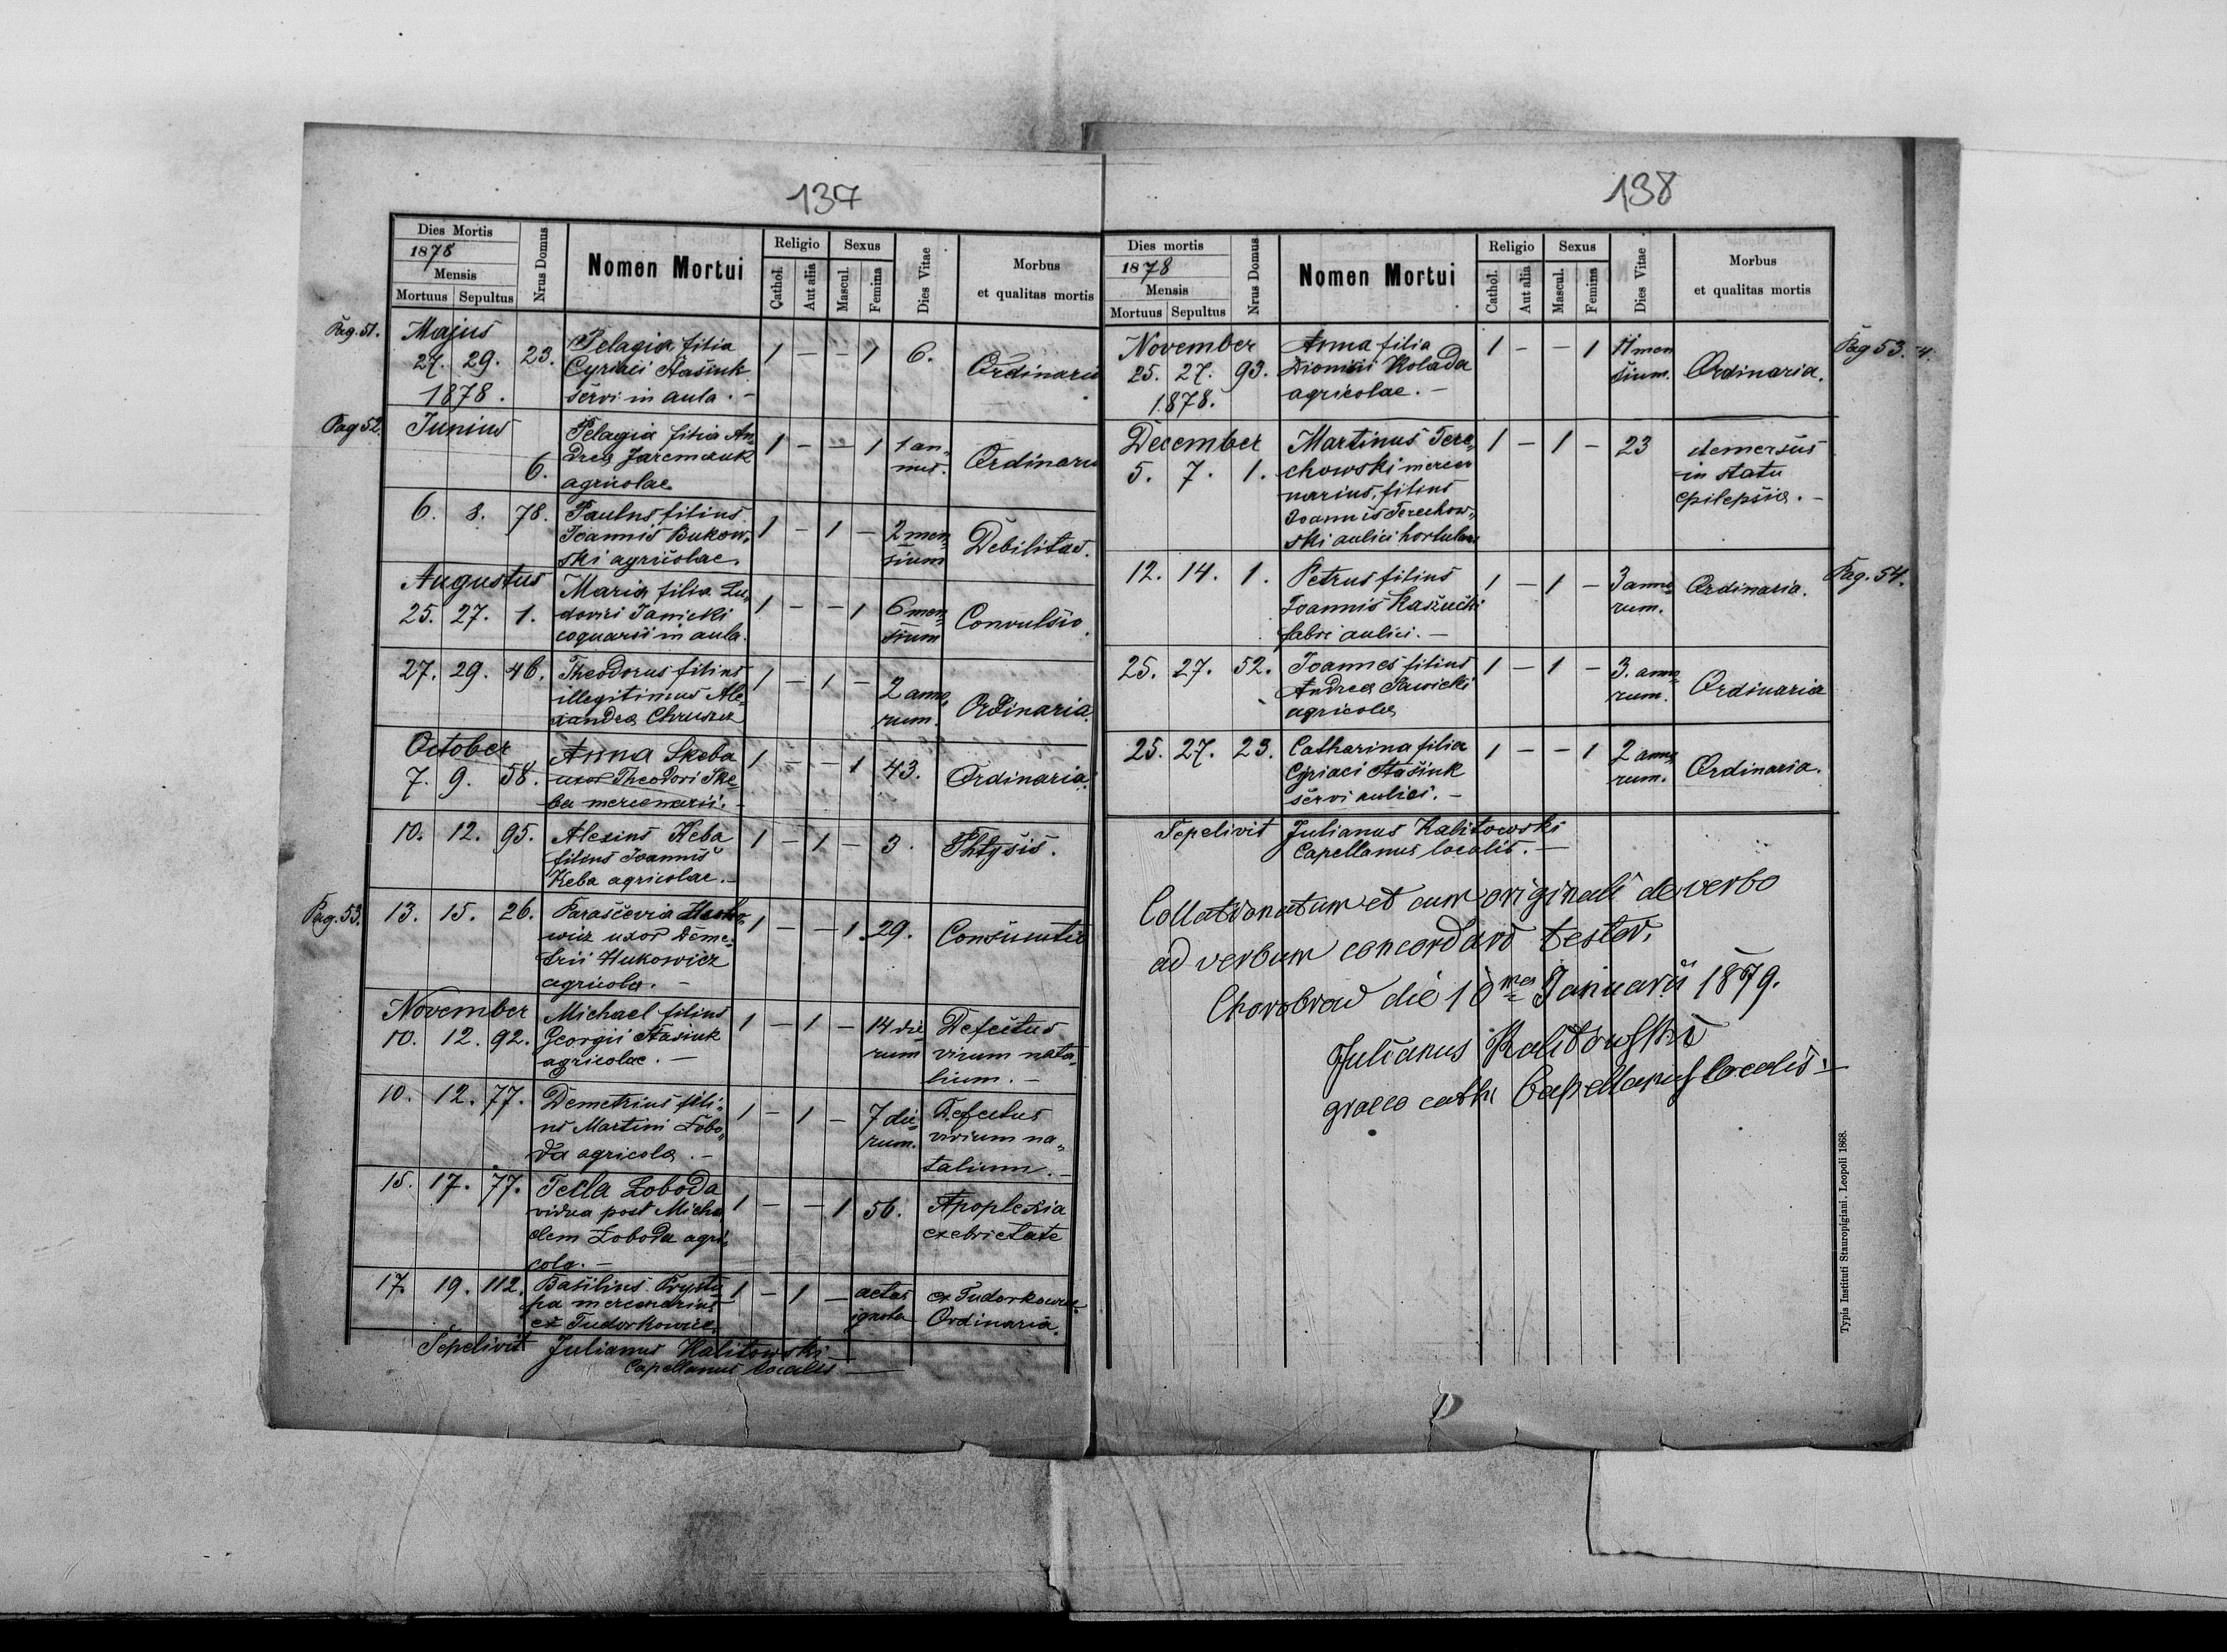 137
Dies Mortis
1878
Mensis
Mortuus Sepultus
Nrus Domus
Nomen Mortui
Religio
Cathol.
Aut alia
Sexus
Mascul.
Femina
Dies Vitae
Morbus
et qualitas mortis
Pag. 51.
Majus
27. 29. 23. Pelagia filia 1 — — 1 6. Ordinaria
Cyriaci Stasiuk
1878. servi in aula. —
Pag 52.
Junius
6. Pelagia filia An„ 1 — — 1 1 an„ Ordinaria
dreae Jaremczuk nus.
agricolae
6. 8. 78. Paulus filius 1 — 1 — 2 men„ Debilitas.
Joannis Bukow„ sium
ski agricolae.
Augustus
25. 27. 1. Maria filia Lu„ 1 — — 1 6 men„ Convulsio.
dovici Janicki sium
coquarii in aula.
27. 29. 46. Theodorus filius 1 — 1 — 2 anno„ Ordinaria.
illegitimus Ale„ rum.
xandra
October
7. 9. 58. Anna Skeba 1 — — 1 43. Ordinaria.
uxor Theodori Ske„
ba mercenarii. —
10. 12. 95. Alexius Keba 1 — 1 — 3. Phtysis.
filius Joannis
Keba agricolae. —
Pag. 53.
13. 15. 26. Parascevia 1 — — 1 29.
wicz uxor Deme„
trii Hukowicz
agricolae. —
November
10. 12. 92. Michael filius 1 — 1 — 14 die„ Defectus
Georgii Stasiuk rum virium nata„
agricolae. — lium. —
10. 12. 77. Demetrius fili„ 1 — 1 — 7 die„ Defectus
us Martini Łobo„ rum. virium na„
da agricolae. — talium. —
15. 17. 77. Tecla Łoboda 1 — — 1 56. Apoplexia
vidua post Micha ex ebrietate
elem Łoboda agri„
cola. —
17. 19. 112. Basilius Prystu 1 — 1 — aetas ex Tudorkowice.
pa mercenarius ignota Ordinaria.
ex Tudorkowice.
Sepelivit Julianus Kalitowski
Capellanus localis —
138
Dies mortis
1878
Mensis
Mortuus Sepultus
Nrus Domus
Nomen Mortui
Religio
Cathol.
Aut alia
Sexus
Mascul.
Femina
Dies Vitae
Morbus
et qualitas mortis
November
25. 27. 93. Anna filia 1 — — 1 11 men Ordinaria. Pag 53.
Dionisii Kolada sium.
1878. agricolae. —
December
5. 7. 1. Martinus Tere„ 1 — 1 — 23 demersus
chowski merce in statu
narius, filius epilepsia. —
Joannis Terechow„
ski aulici hortulani
12. 14. 1. Petrus filius 1 — 1 — 3 anno„ Ordinaria. Pag. 54.
Joannis rum.
fabri aulici. —
25. 27. 52. Joannes filius 1 — 1 — 3. anno„ Ordinaria
Andreae Sawicki rum.
agricolae
25. 27. 23. Catharina filia 1 — — 1 2 anno„ Ordinaria.
Cyriaci Stasiuk rum.
servi aulici. —
Sepelivit Julianus Kalitowski
Capellanus localis. —
Collationatum et cum originali de verbo
ad verbum concordare testor.
Chorobrow die 10ma Januarii 1879.
Julianus Kalitowski
graeco cath. Capellanus localis. —
Typis Instituti Stauropigiani, Leopoli 1868.